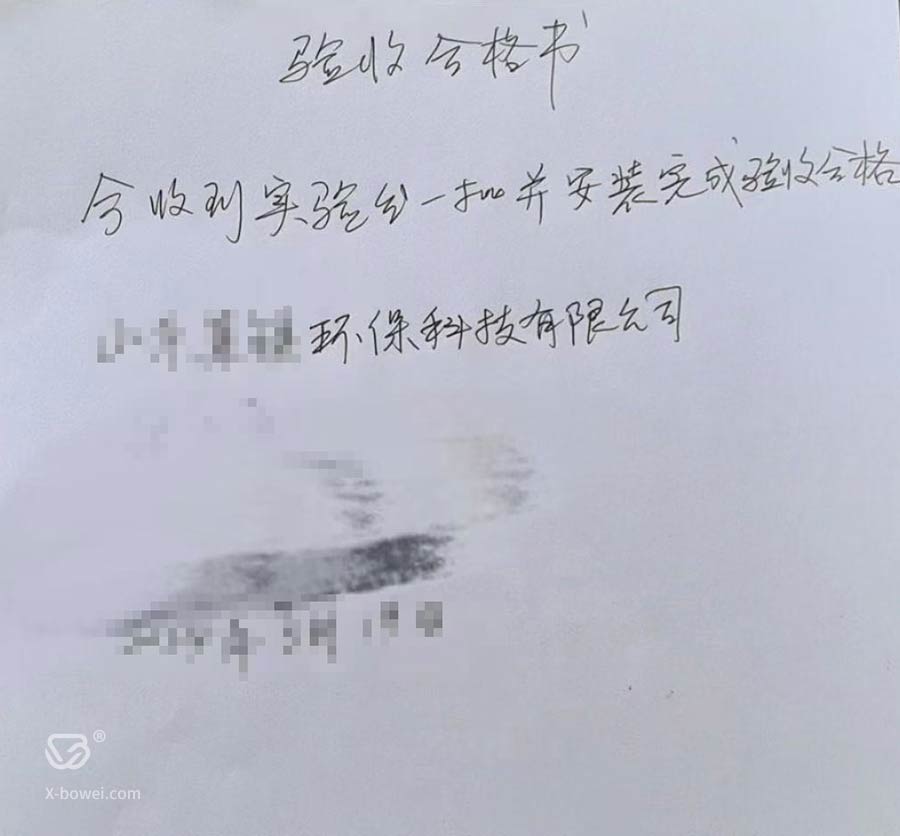 验收合格书
今收到实验台一批并安装完成验收合格
环保科技有限公司
®
X-bowei.com